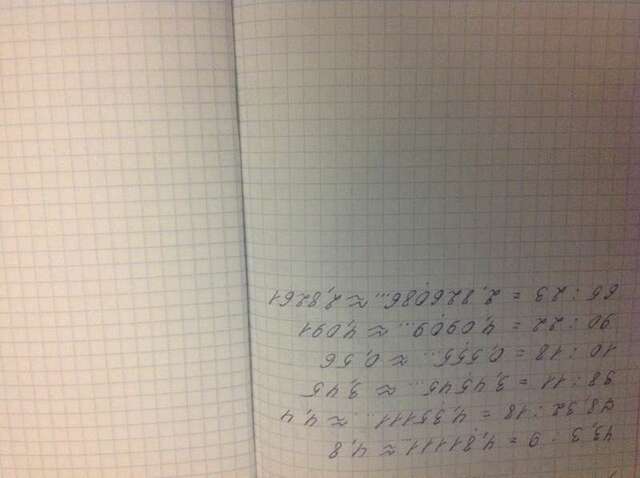 43,3 : 9 = 4,81111 ≈ 4,8
78,32 : 18 = 4,35111.. ≈ 4,4
38 : 11 = 3,4545... ≈ 3,45
10 : 18 = 0,555... ≈ 0,56
90 : 22 = 4,0909... ≈ 4,091
65 : 23 = 2,826086... ≈ 2,8261